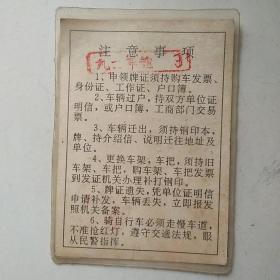 注意事项
九二年检
1、申领牌证须持购车发票、
身份证、工作证、户口簿。
2、车辆过户，持双方单位证
明信，或户口簿，工商部门交易
票。
3、车辆迁出，须持钢印本，
牌、持介绍信、说明迁往地址及
单位。
4、更换车架，车把，须持旧
车架、车把，购车架、车把发票
到发证机关办理补打钢印。
5、牌证遗失，凭单位证明信
申请补发，车辆丢失，立即报发
照机关备案。
6、骑自行车必须走慢车道，
不准抢红灯，遵守交通法规，服
从民警指挥。